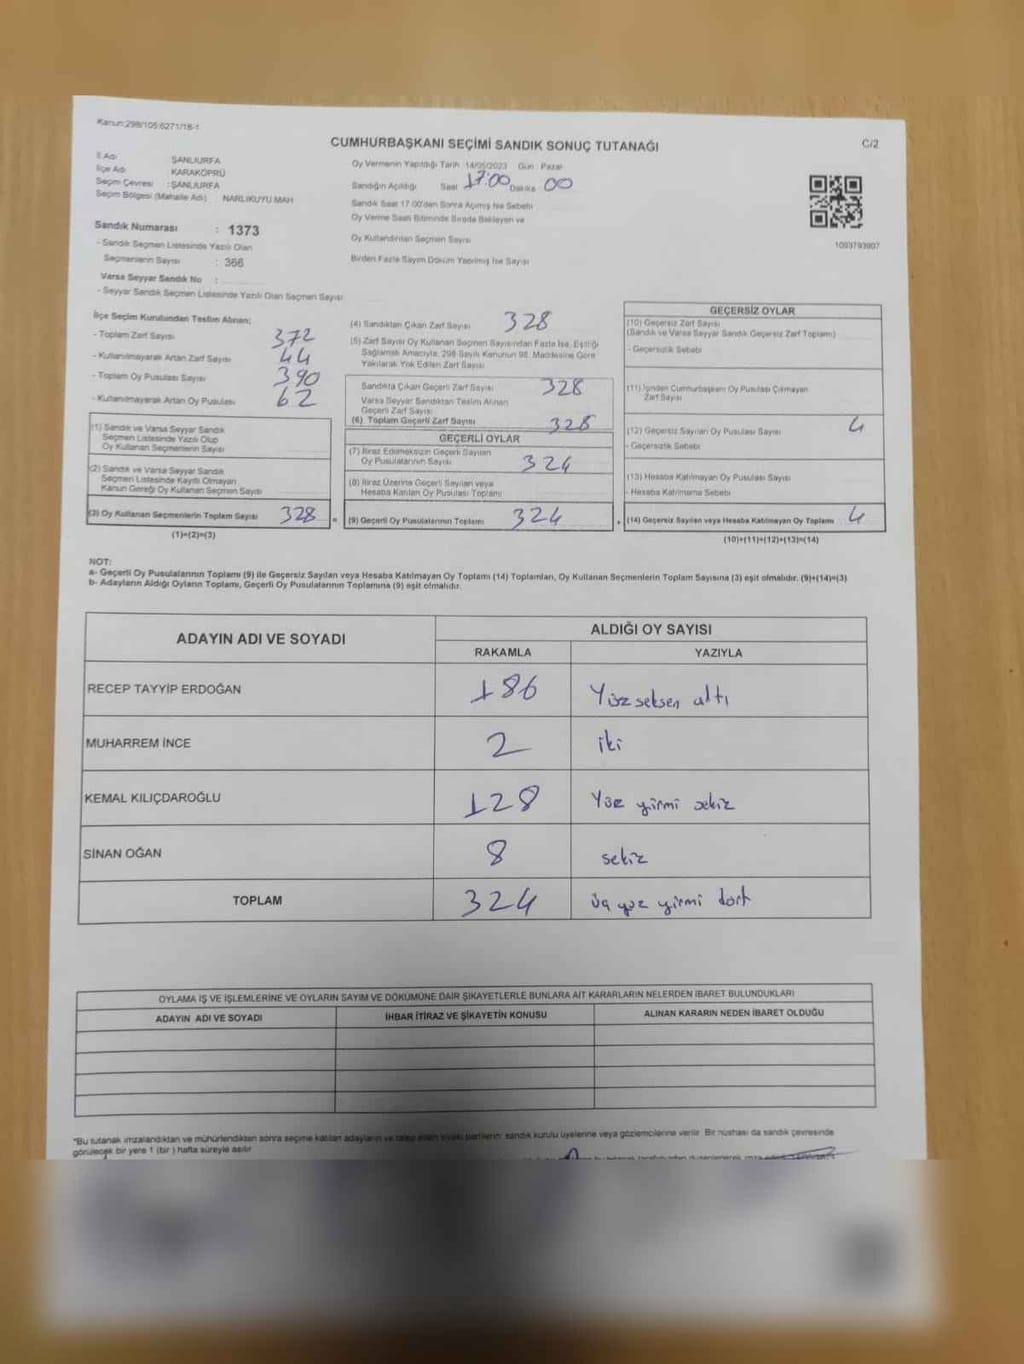 Kanun:298/105:6271/18-1
CUMHURBAŞKANI SEÇİMİ SANDIK SONUÇ TUTANAĞI
C/2
İl Adı ŞANLIURFA
İlçe Adı KARAKÖPRÜ
Seçim Çevresi : ŞANLIURFA
Seçim Bölgesi (Mahalle Adı) NARLIKUYU MAH
Sandık Numarası : 1373
- Sandık Seçmen Listesinde Yazılı Olan
Seçmenlerin Sayısı : 366
Varsa Seyyar Sandık No :
- Seyyar Sandık Seçmen Listesinde Yazılı Olan Seçmen Sayısı
Oy Vermenin Yapıldığı Tarih 14/05/2023 Gün Pazar
Sandığın Açıldığı Saat 17:00 Dakika 00
Sandık Saat 17:00'den Sonra Açılmış İse Sebebi
Oy Verme Saati Bitiminde Sırada Bekleyen ve
Oy Kullandırılan Seçmen Sayısı
Birden Fazla Sayım Döküm Yapılmış İse Sayısı
1093793907
İlçe Seçim Kurulundan Teslim Alınan;
- Toplam Zarf Sayısı 372
- Kullanılmayarak Artan Zarf Sayısı 44
- Toplam Oy Pusulası Sayısı 390
- Kullanılmayarak Artan Oy Pusulası 62
(1) Sandık ve Varsa Seyyar Sandık
Seçmen Listesinde Yazılı Olup
Oy Kullanan Seçmenlerin Sayısı
(2) Sandık ve Varsa Seyyar Sandık
Seçmen Listesinde Kayıtlı Olmayan
Kanun Gereği Oy Kullanan Seçmen Sayısı
(3) Oy Kullanan Seçmenlerin Toplam Sayısı 328
(1)+(2)=(3)
(4) Sandıktan Çıkan Zarf Sayısı 328
(5) Zarf Sayısı Oy Kullanan Seçmen Sayısından Fazla İse, Eşitliği
Sağlamak Amacıyla, 298 Sayılı Kanunun 98. Maddesine Göre
Yakılarak Yok Edilen Zarf Sayısı
Sandıkta Çıkan Geçerli Zarf Sayısı 328
Varsa Seyyar Sandıktan Teslim Alınan
Geçerli Zarf Sayısı
(6) Toplam Geçerli Zarf Sayısı 328
GEÇERLİ OYLAR
(7) İtiraz Edilmeksizin Geçerli Sayılan
Oy Pusulalarının Sayısı 324
(8) İtiraz Üzerine Geçerli Sayılan veya
Hesaba Katılan Oy Pusulası Toplamı
= (9) Geçerli Oy Pusulalarının Toplamı 324
GEÇERSİZ OYLAR
(10) Geçersiz Zarf Sayısı
(Sandık ve Varsa Seyyar Sandık Geçersiz Zarf Toplamı)
- Geçersizlik Sebebi
(11) İçinden Cumhurbaşkanı Oy Pusulası Çıkmayan
Zarf Sayısı
(12) Geçersiz Sayılan Oy Pusulası Sayısı 4
- Geçersizlik Sebebi
(13) Hesaba Katılmayan Oy Pusulası Sayısı
- Hesaba Katılmama Sebebi
+ (14) Geçersiz Sayılan veya Hesaba Katılmayan Oy Toplamı 4
(10)+(11)+(12)+(13)=(14)
NOT:
a- Geçerli Oy Pusulalarının Toplamı (9) ile Geçersiz Sayılan veya Hesaba Katılmayan Oy Toplamı (14) Toplamları, Oy Kullanan Seçmenlerin Toplam Sayısına (3) eşit olmalıdır. (9)+(14)=(3)
b- Adayların Aldığı Oyların Toplamı, Geçerli Oy Pusulalarının Toplamına (9) eşit olmalıdır.
ADAYIN ADI VE SOYADI
ALDIĞI OY SAYISI
RAKAMLA YAZIYLA
RECEP TAYYİP ERDOĞAN 186 Yüz seksen altı
MUHARREM İNCE 2 iki
KEMAL KILIÇDAROĞLU 128 Yüz yirmi sekiz
SİNAN OĞAN 8 sekiz
TOPLAM 324 üç yüz yirmi dört
OYLAMA İŞ VE İŞLEMLERİNE VE OYLARIN SAYIM VE DÖKÜMÜNE DAİR ŞİKAYETLERLE BUNLARA AİT KARARLARIN NELERDEN İBARET BULUNDUKLARI
ADAYIN ADI VE SOYADI İHBAR İTİRAZ VE ŞİKAYETİN KONUSU ALINAN KARARIN NEDEN İBARET OLDUĞU
*Bu tutanak imzalandıktan ve mühürlendikten sonra seçime katılan adayların ve talep eden siyasi partilerin sandık kurulu üyelerine veya gözlemcilerine verilir. Bir nüshası da sandık çevresinde
görülecek bir yere 1 (bir) hafta süreyle asılır